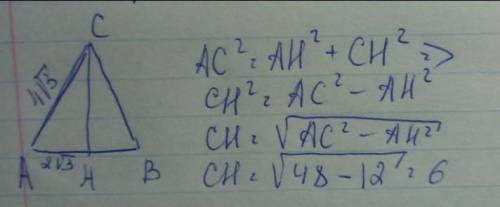 C
4√3
A 2√3 H B
AC² = AH² + CH² =>
CH² = AC² - AH²
CH = √AC² - AH²
CH = √48 - 12 = 6